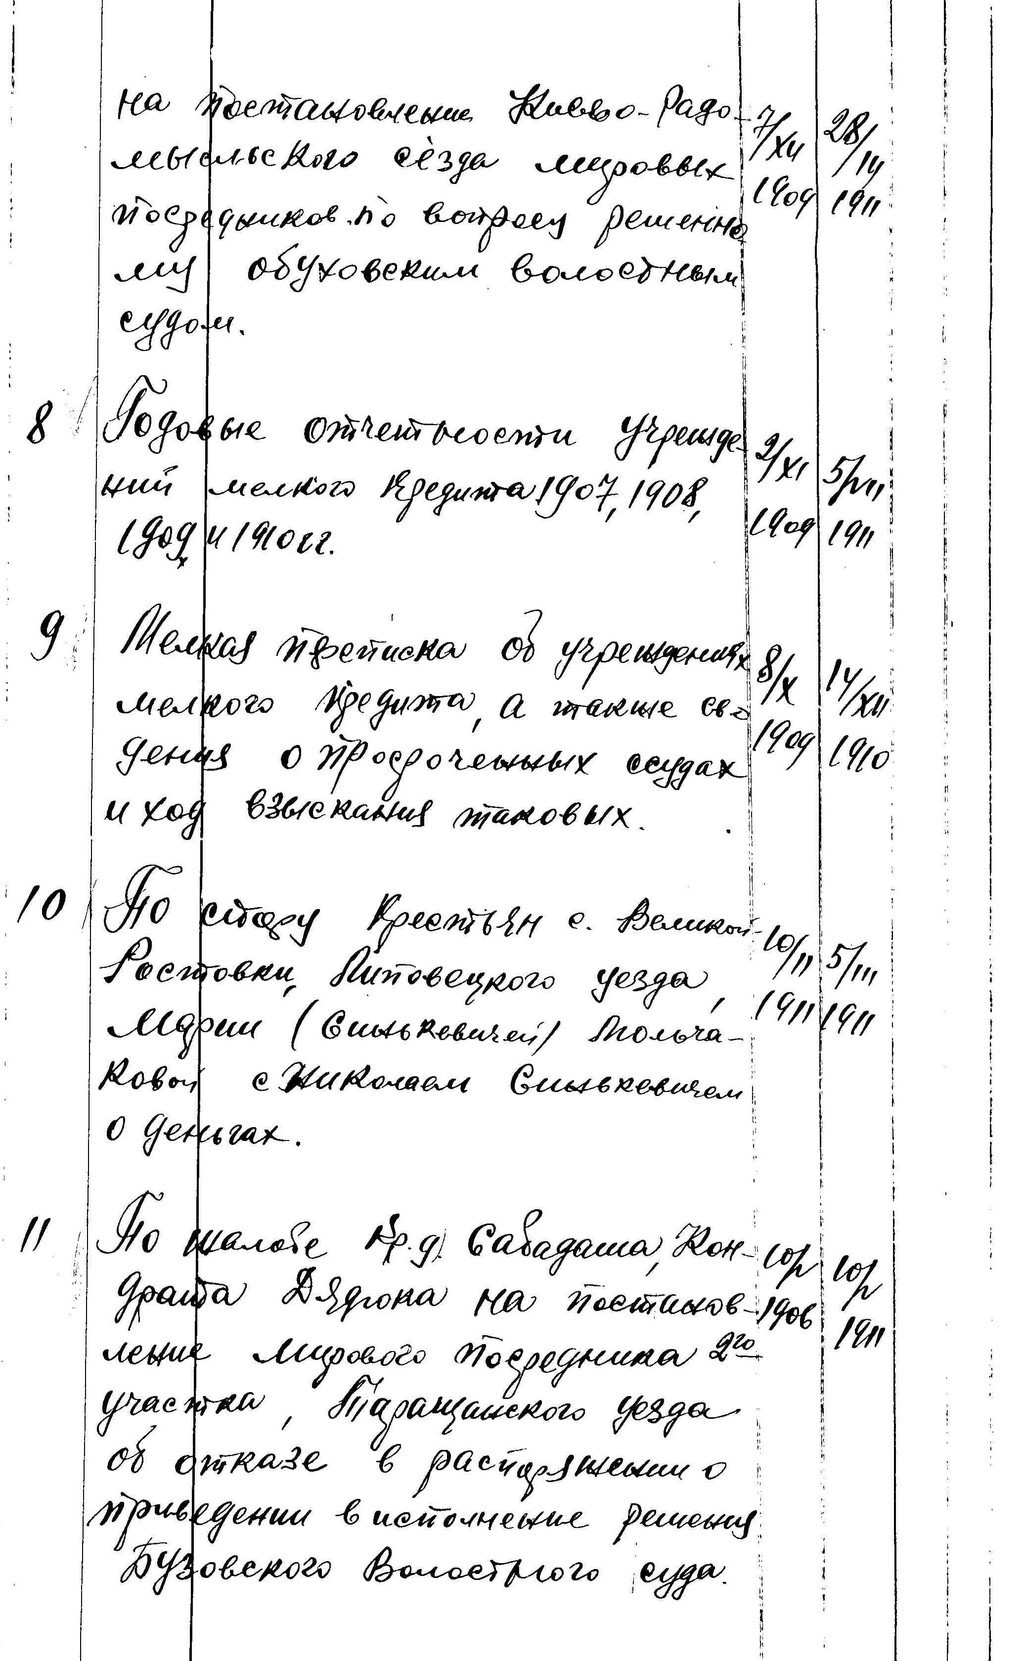 на постановление Киево-Радо- 7/XII 28/IV
мысльского сёзда мировых 1909 1911
посредников по вопросу решенно
му обуховским волостным
судом.
8 Годовые отчетности учрежде- 2/XI 5/VII
ний мелкого кредита 1907, 1908, 1909 1911
1909 и 1910 гг.
9 Мелкая переписка об учреждениях 8/X 14/XII
мелкого кредита, а также све- 1909 1910
дения о просроченных ссудах
и ход взыскания таковых.
10 По спору крестьян с. Великой 10/II 5/III
Ростовки, Липовецкого уезда, 1911 1911
Марии (Синькевичей) Толча-
ковой с Николаем Синькевичем
о деньгах.
11 По жалобе кр. д. Сабадаша, Кон- 10/V 10/V
драта Дядюка на постанов- 1906 1911
ление мирового посредника 2го
участка, Таращанского уезда
об отказе в распоряжении о
приведении в исполнение решения
Бузовского Волостного суда.